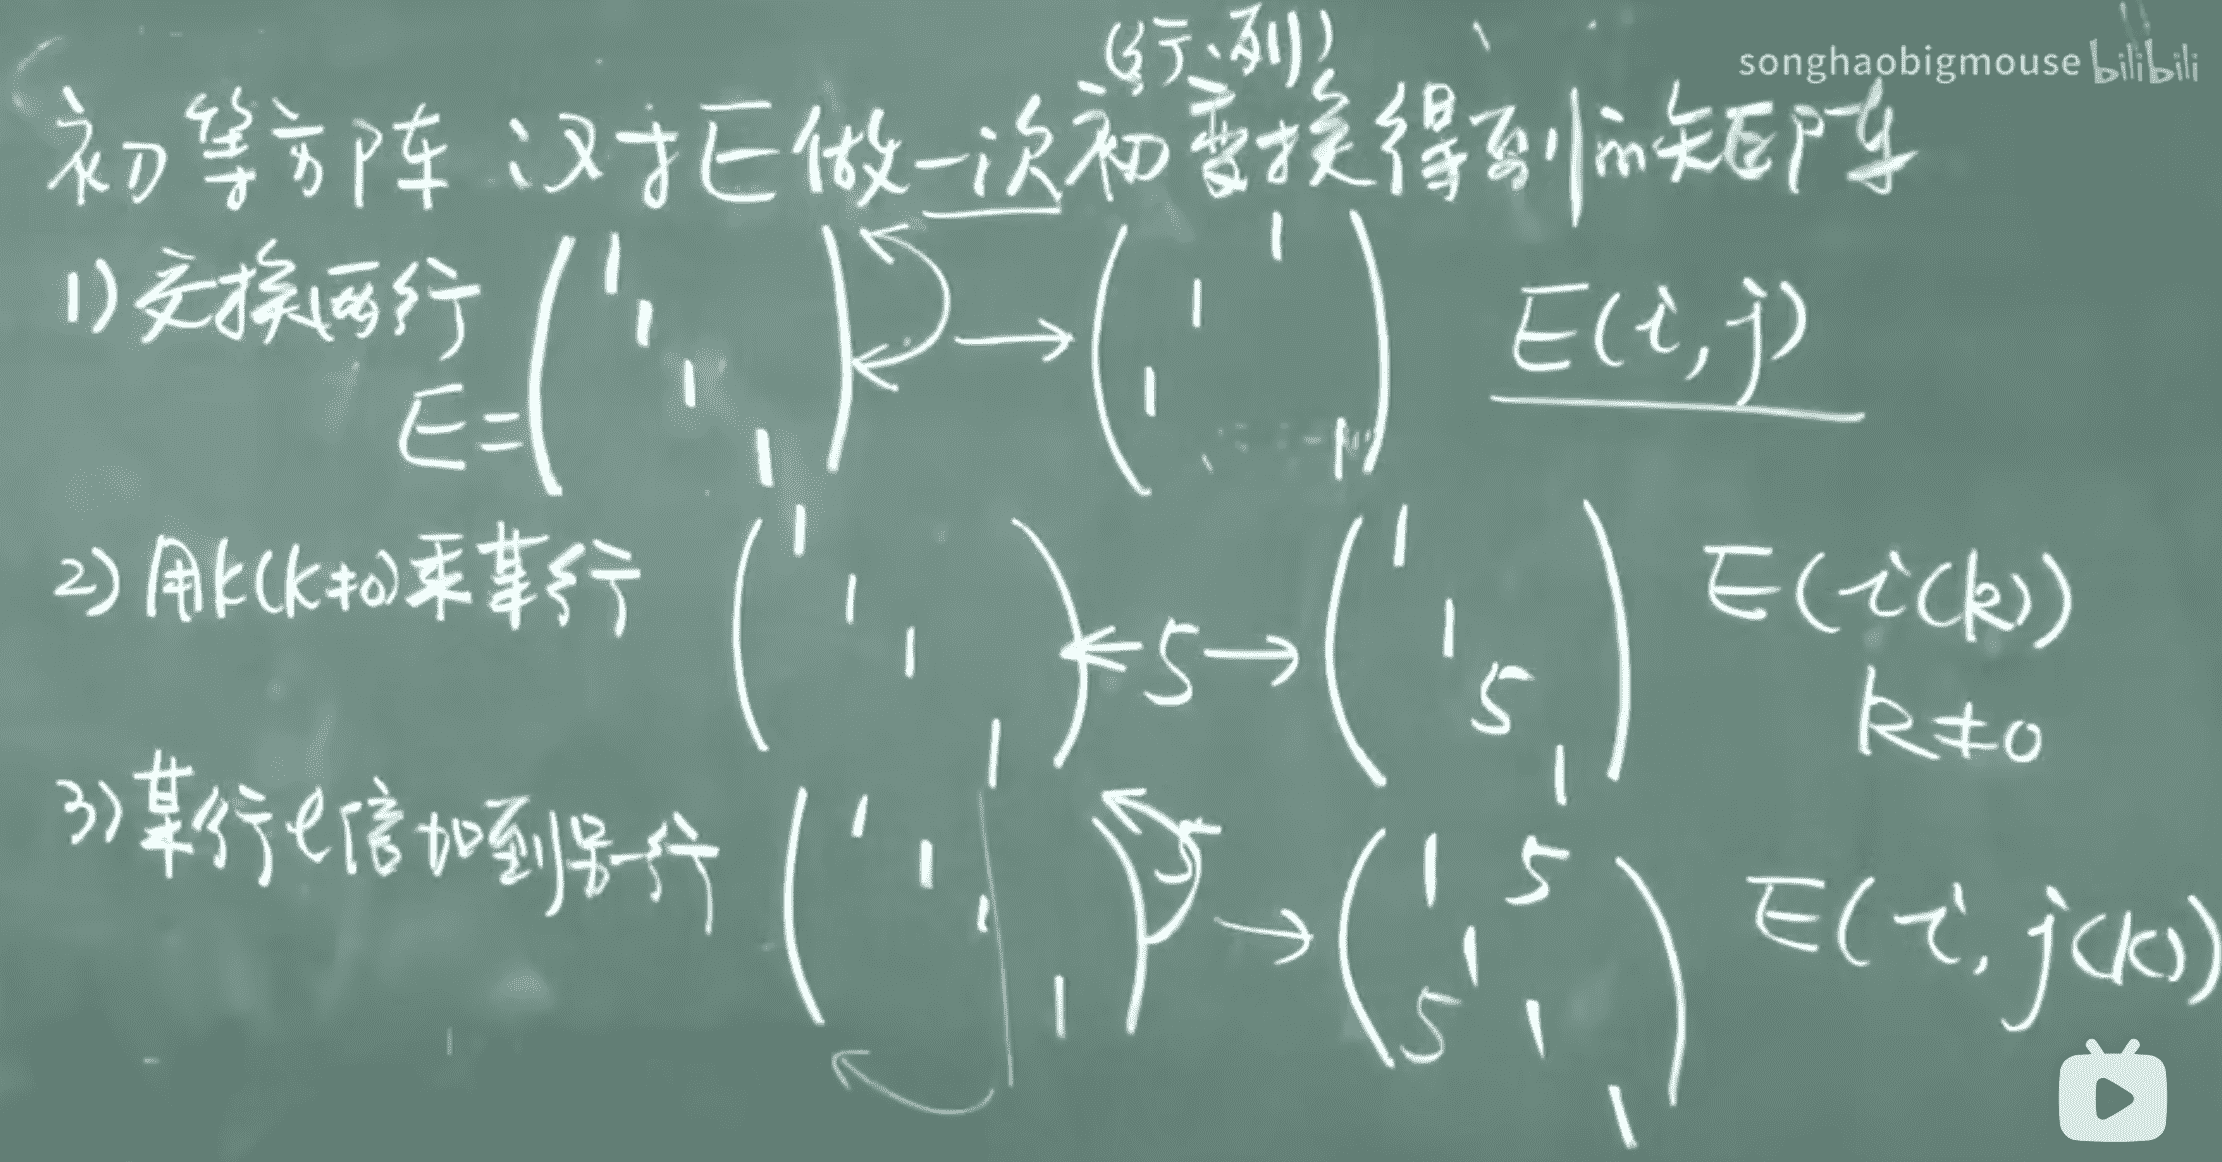 songhaobigmouse bilibili
(行、列)
初等方阵:对E做一次初变换得到in矩阵
1) 交换两行
E=
1
1
1
1
→
1
1
1
1
E(i,j)
2) 用k(k≠0)乘某行
1
1
1
1
←5→
1
1
5
1
E(i(k))
k≠0
3) 某行l倍加到另一行
1
1
1
1
5
→
1 5
1
5 1
1
E(i,j(k))